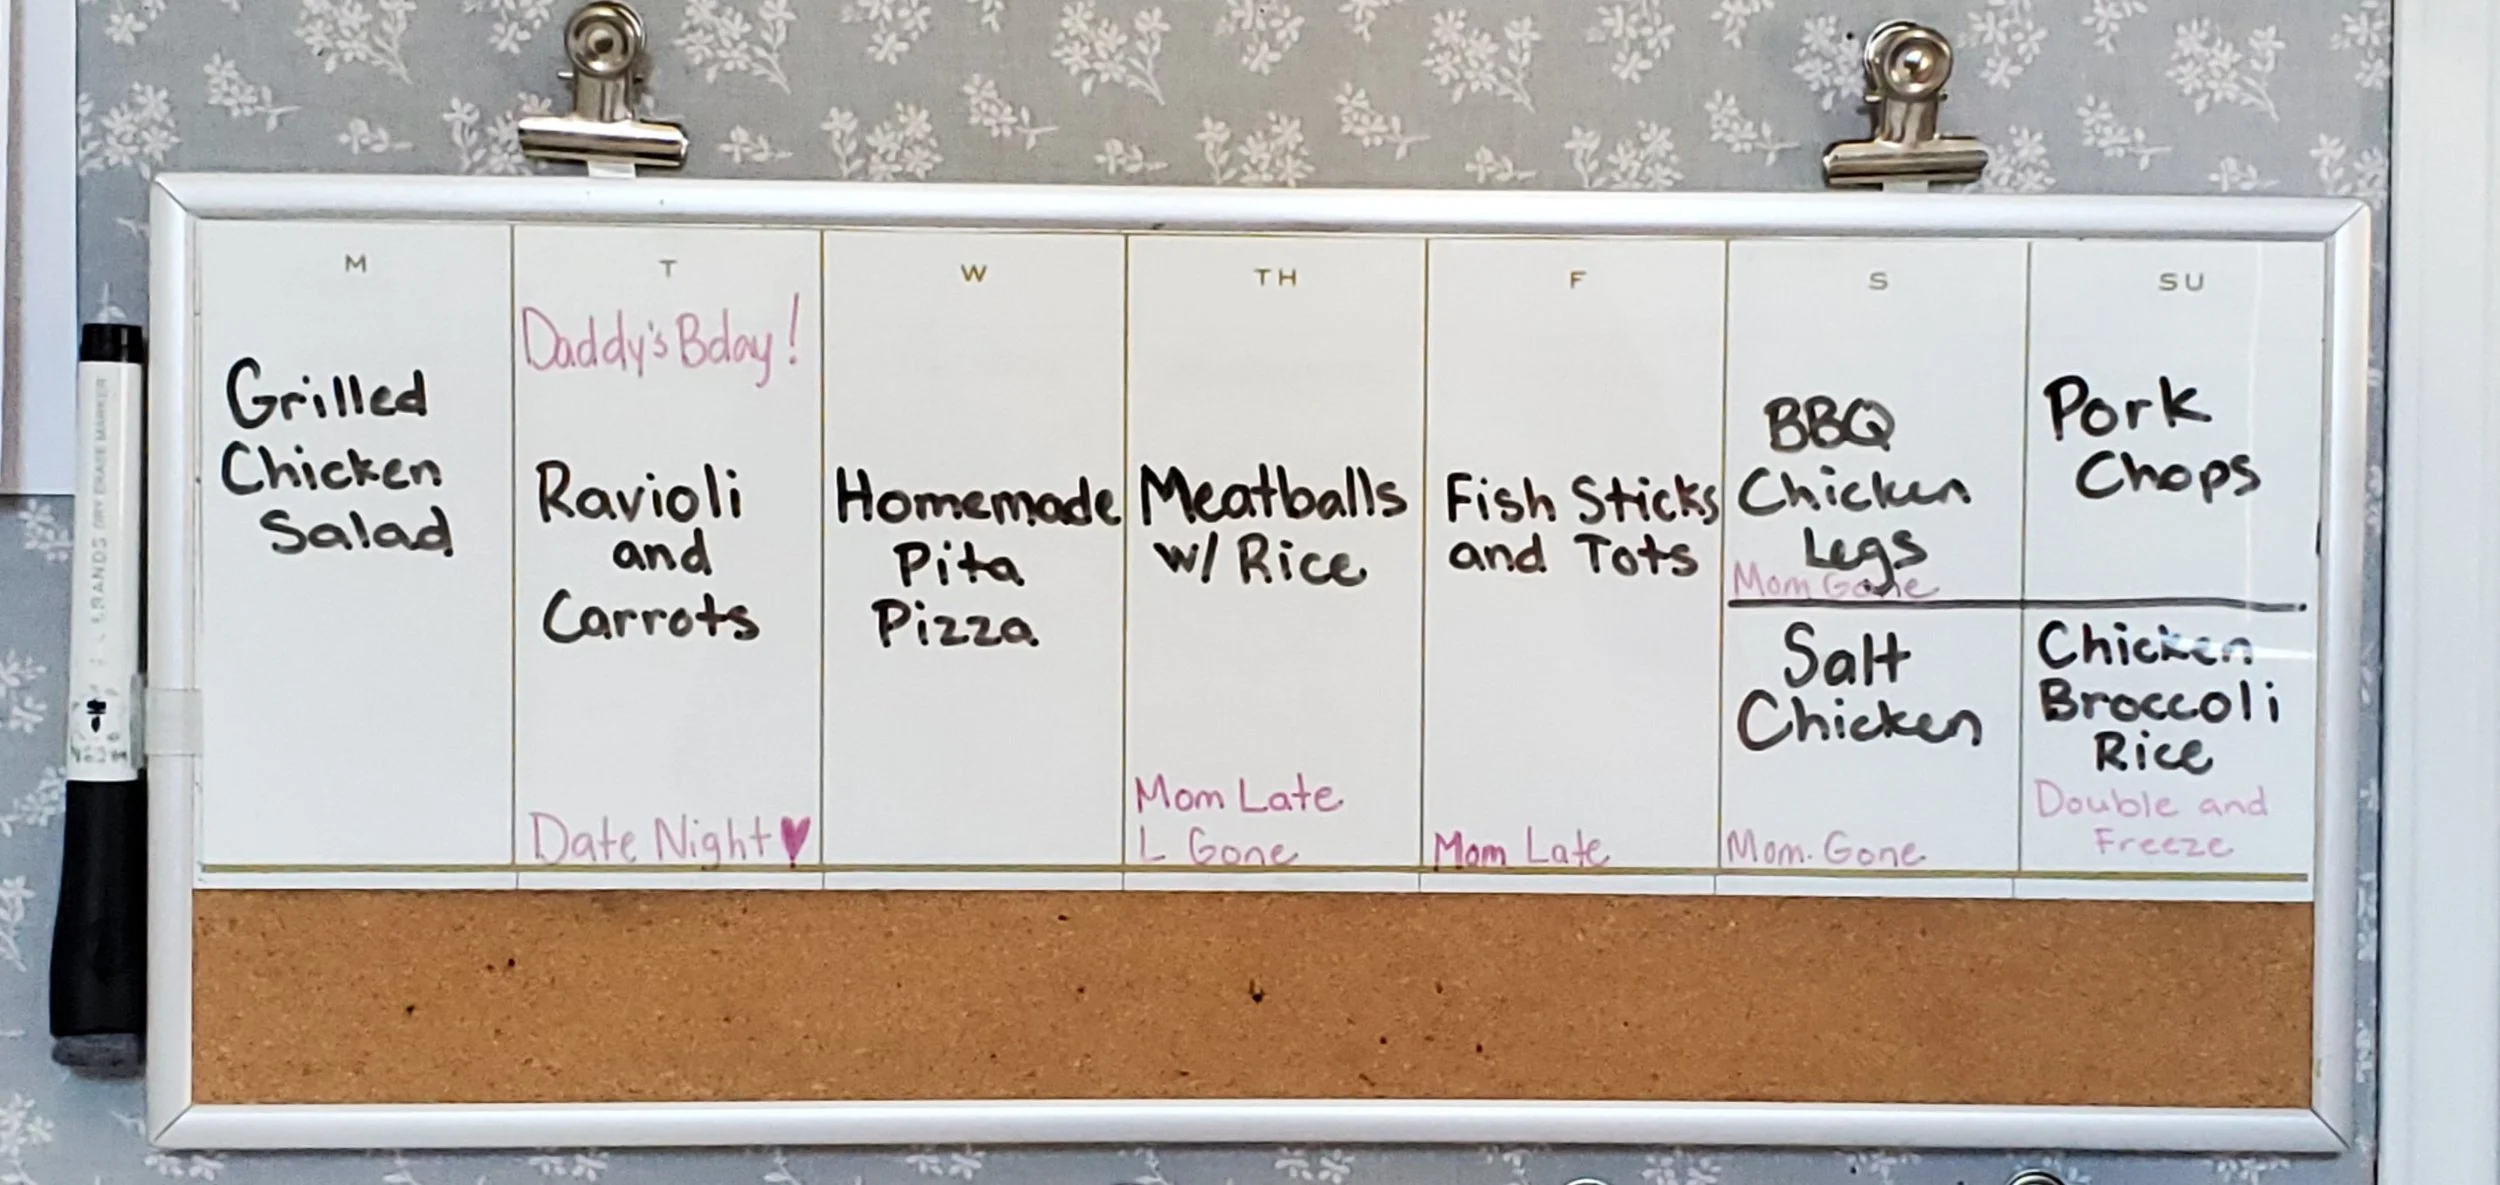 M
Grilled
Chicken
Salad
T
Daddy's Bday!
Ravioli
and
Carrots
Date Night
W
Homemade
Pita
Pizza
TH
Meatballs
w/ Rice
Mom Late
L Gone
F
Fish Sticks
and Tots
Mom Late
S
BBQ
Chicken
Legs
Mom Gone
Salt
Chicken
Mom. Gone
SU
Pork
Chops
Chicken
Broccoli
Rice
Double and
Freeze
DRY ERASE MARKER